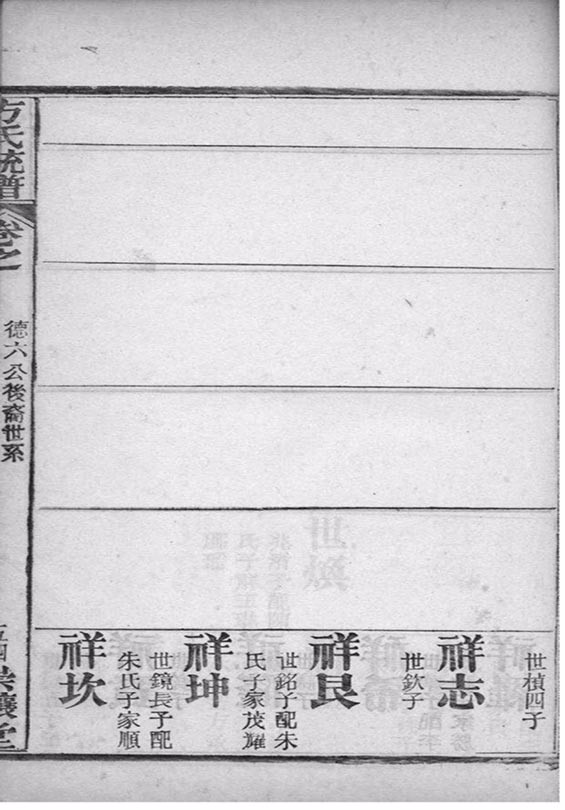 世楨四子
祥志
世欽子
祥艮
世銘子配朱
氏子家茂耀
祥坤
世鏡長子配
朱氏子家順
祥坎
方氏統譜
卷之
德六公後裔世系